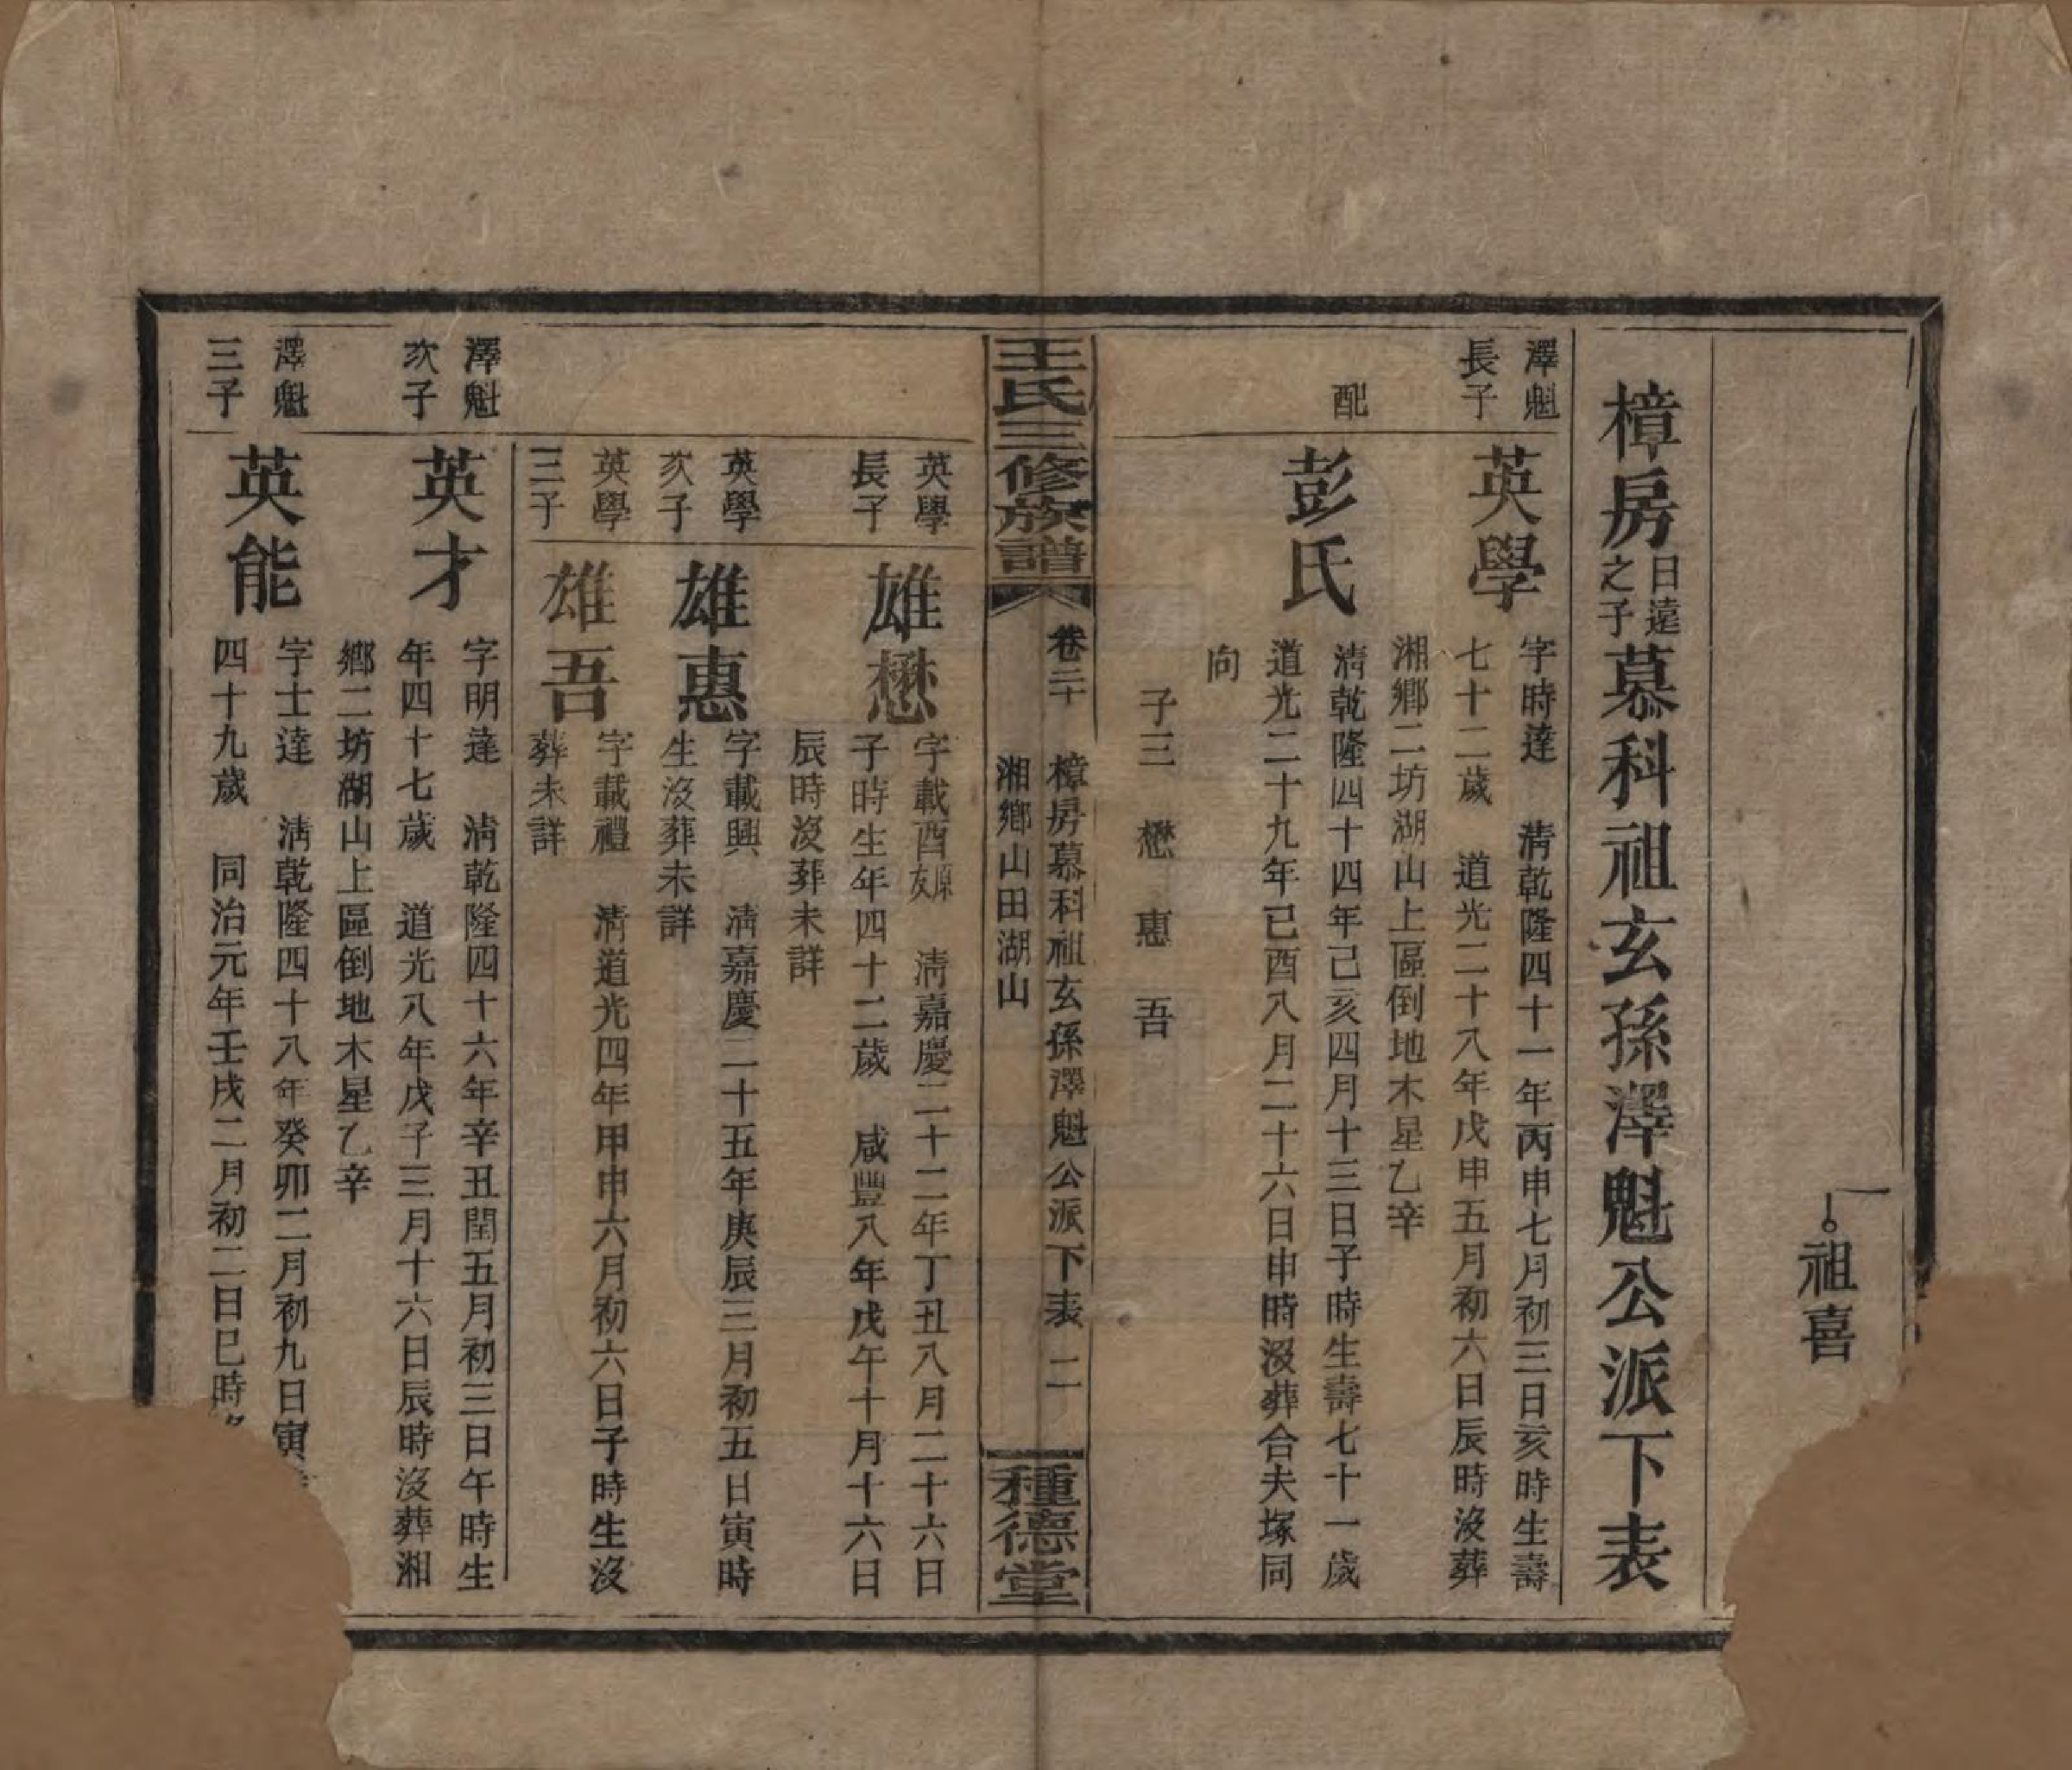 祖喜
樟房日遠之子慕科祖玄孫澤魁公派下表
澤魁
長子
英學
字時達　清乾隆四十一年丙申七月初三日亥時生壽
七十二歲　道光二十八年戊申五月初六日辰時沒葬
湘鄉二坊湖山上區倒地木星乙辛
配
彭氏
清乾隆四十四年己亥四月十三日子時生壽七十一歲
道光二十九年己酉八月二十六日申時沒葬合夫塚同
向
子三　懋　惠　吾
王氏三修族譜
卷二十
樟房慕科祖玄孫澤魁公派下表　二
湘鄉山田湖山
種德堂
英學
長子
雄懋
字載酉原友　清嘉慶二十二年丁丑八月二十六日
子時生年四十二歲　咸豐八年戊午十月十六日
辰時沒葬未詳
英學
次子
雄惠
字載興　清嘉慶二十五年庚辰三月初五日寅時
生沒葬未詳
英學
三子
雄吾
字載禮　清道光四年甲申六月初六日子時生沒
葬未詳
澤魁
次子
英才
字明達　清乾隆四十六年辛丑閏五月初三日午時生
年四十七歲　道光八年戊子三月十六日辰時沒葬湘
鄉二坊湖山上區倒地木星乙辛
澤魁
三子
英能
字士達　清乾隆四十八年癸卯二月初九日寅
四十九歲　同治元年壬戌二月初二日巳時